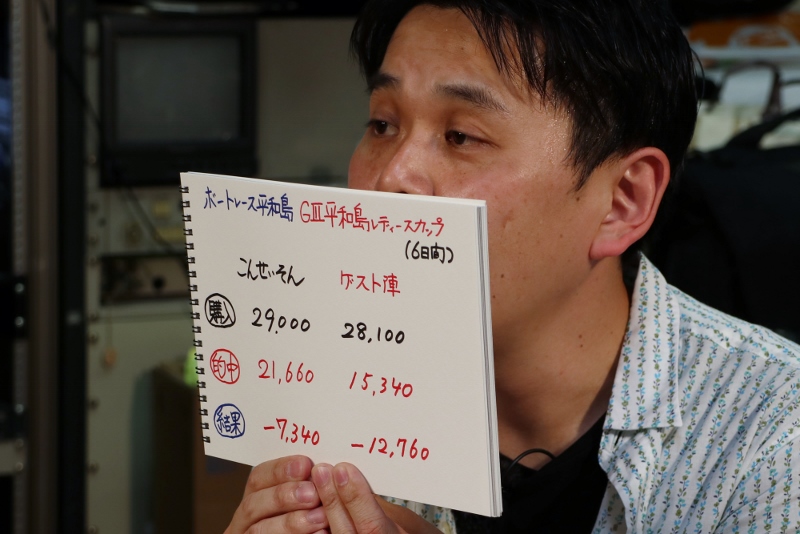 ボートレース平和島 GⅢ平和島レディースカップ
(6日間)
こんせいそん ゲスト陣
購入 29,000 28,100
的中 21,660 15,340
結果 -7,340 -12,760